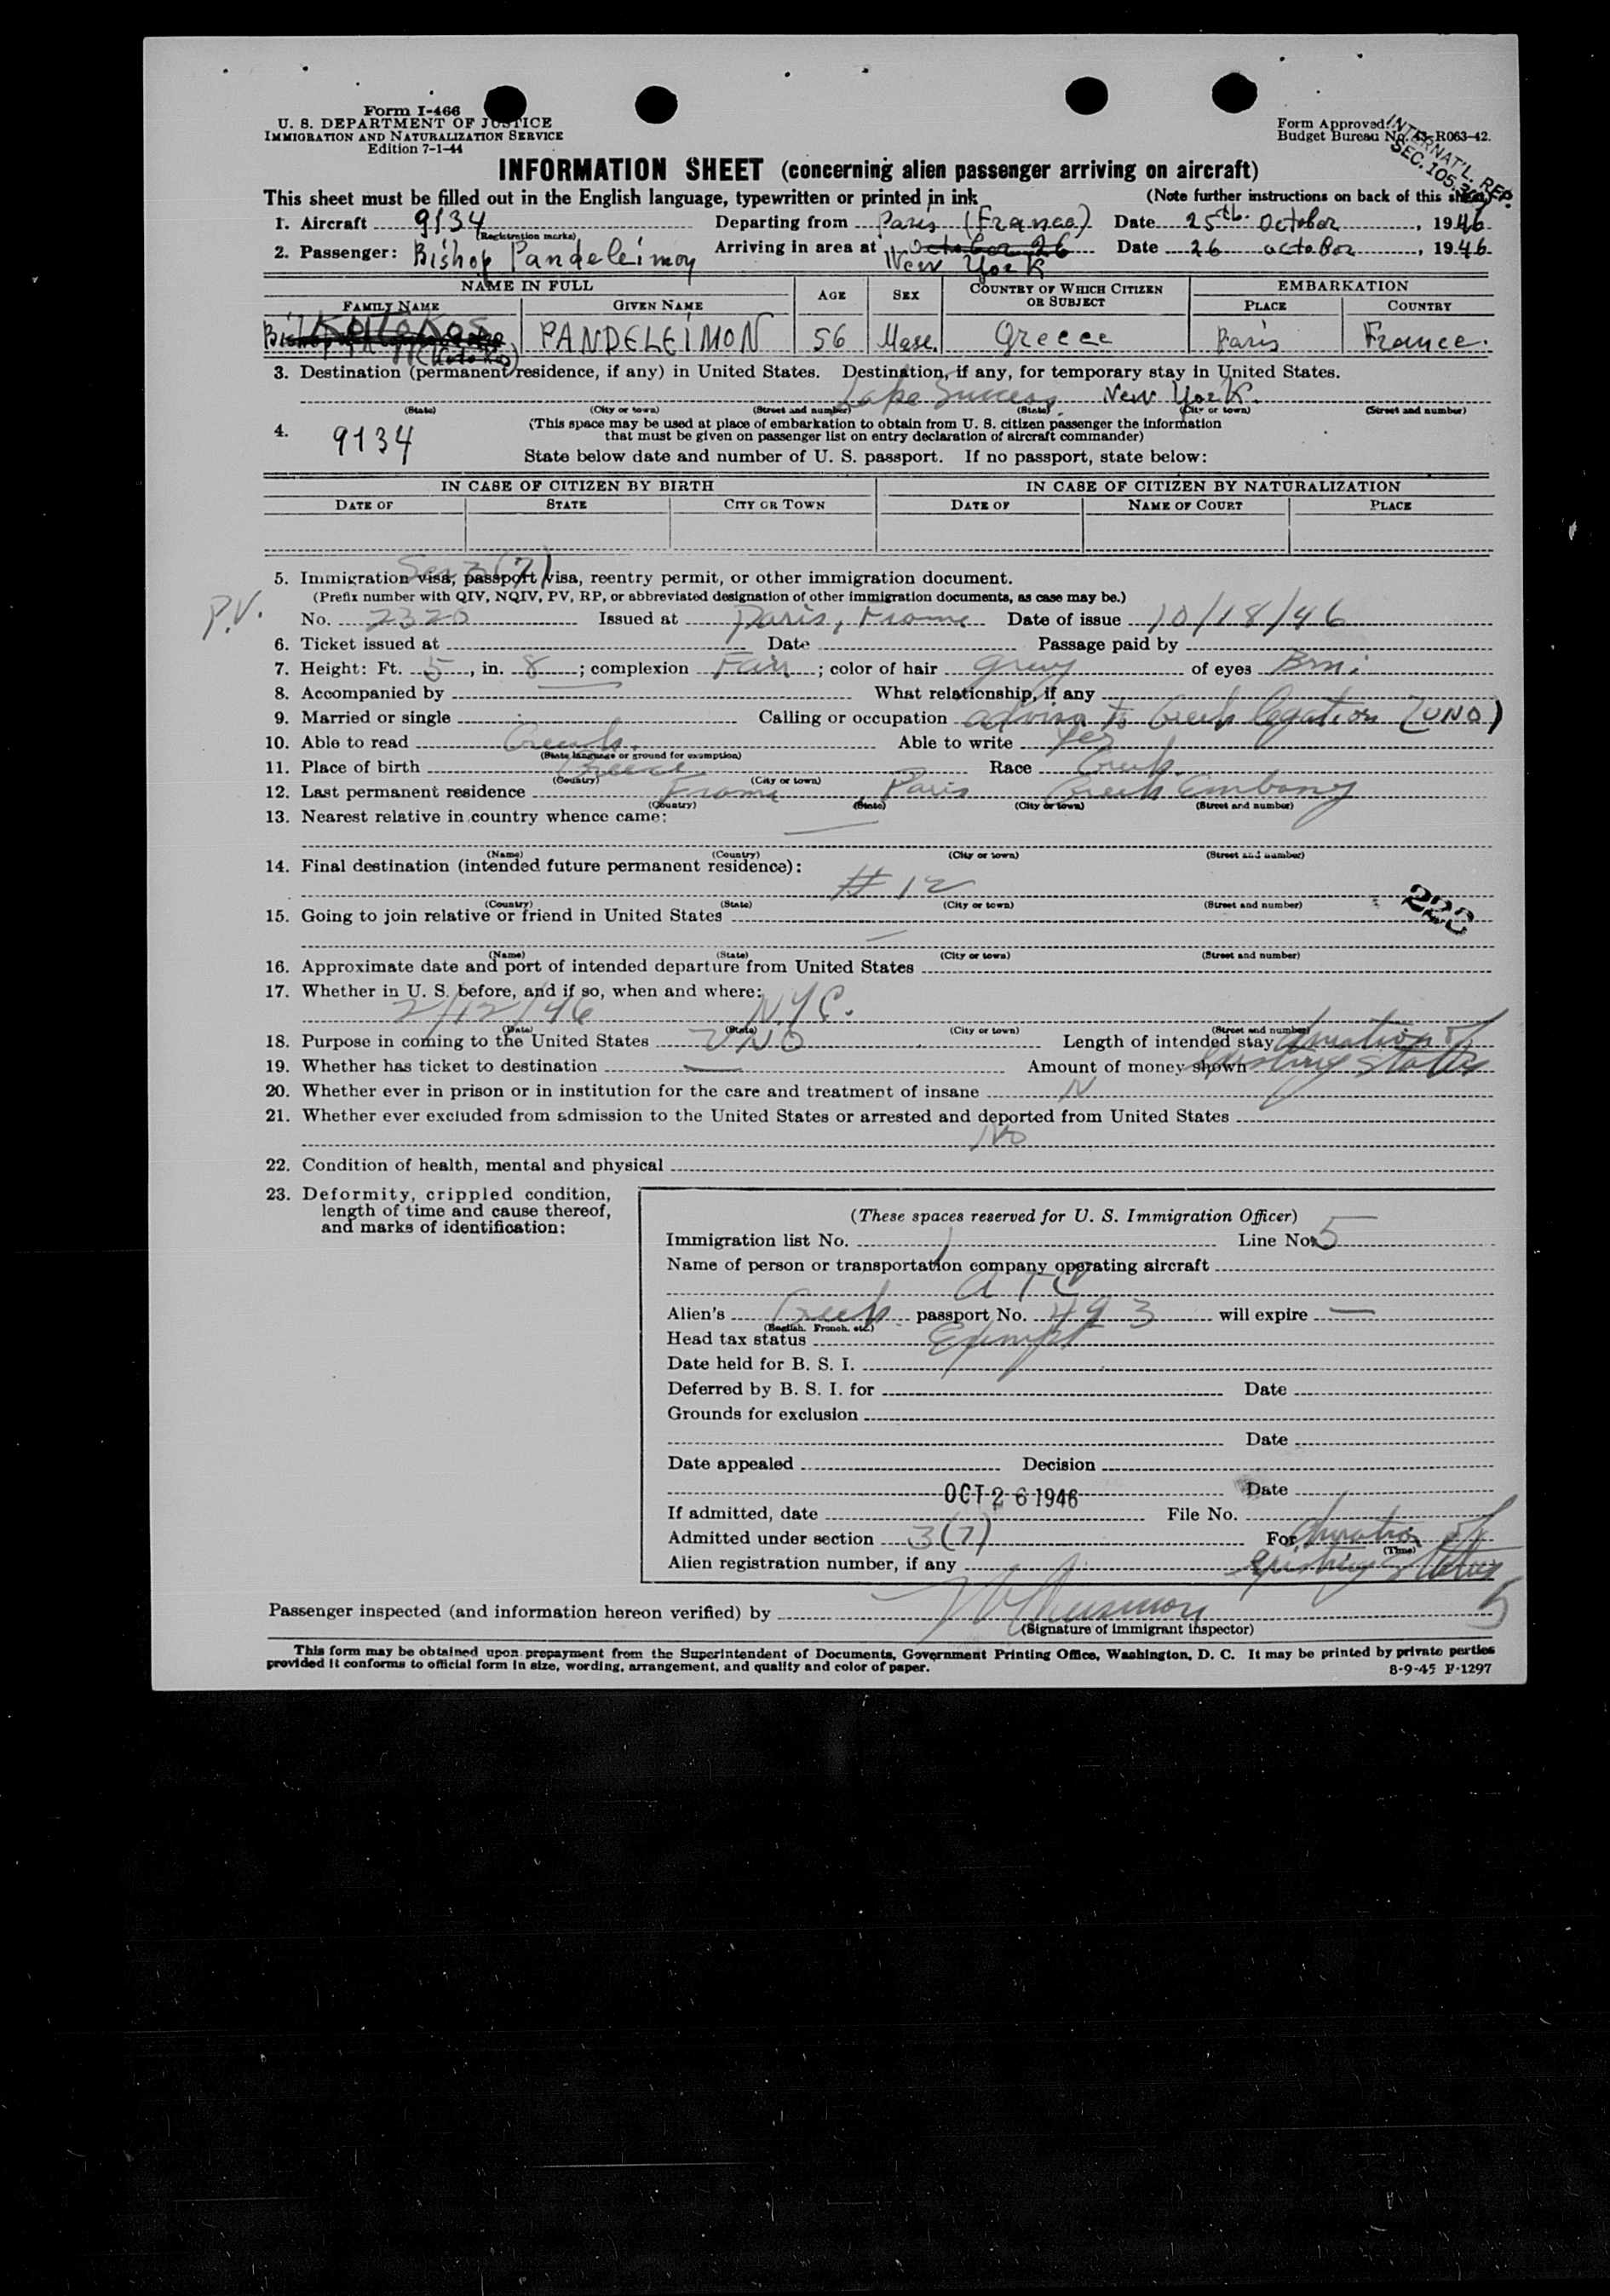 Form I-466
U. S. DEPARTMENT OF JUSTICE
IMMIGRATION AND NATURALIZATION SERVICE
Edition 7-1-44
Form Approved.
Budget Bureau No. 43-R063-42.
INTERNAT'L. REP.
SEC. 105.3
INFORMATION SHEET (concerning alien passenger arriving on aircraft)
This sheet must be filled out in the English language, typewritten or printed in ink (Note further instructions on back of this sheet)
1. Aircraft 9134 Departing from Paris (France) Date 25th. October, 1946
(Registration marks)
2. Passenger: Bishop Pandeleimon Arriving in area at October 26 Date 26 october, 1946
New York
NAME IN FULL AGE SEX COUNTRY OF WHICH CITIZEN OR SUBJECT EMBARKATION
FAMILY NAME GIVEN NAME PLACE COUNTRY
PANDELEIMON 56 Masc. Greece Paris France.
3. Destination (permanent residence, if any) in United States. Destination, if any, for temporary stay in United States.
Lake Success New York.
(State) (City or town) (Street and number) (State) (City or town) (Street and number)
4. 9134 (This space may be used at place of embarkation to obtain from U. S. citizen passenger the information
that must be given on passenger list on entry declaration of aircraft commander)
State below date and number of U. S. passport. If no passport, state below:
IN CASE OF CITIZEN BY BIRTH IN CASE OF CITIZEN BY NATURALIZATION
DATE OF STATE CITY OR TOWN DATE OF NAME OF COURT PLACE
Sec 3(7)
5. Immigration visa, passport visa, reentry permit, or other immigration document.
(Prefix number with QIV, NQIV, PV, RP, or abbreviated designation of other immigration documents, as case may be.)
P.V. No. 2320 Issued at Paris, France Date of issue 10/18/46
6. Ticket issued at Date Passage paid by
7. Height: Ft. 5, in. 8; complexion Fair; color of hair grey of eyes Brn.
8. Accompanied by — What relationship, if any
9. Married or single Calling or occupation advisor to Greek legation (UNO)
10. Able to read Greek. Able to write Yes
(State language or ground for exemption)
11. Place of birth Greece Race Greek.
(Country) (City or town)
12. Last permanent residence France Paris Greek Embassy
(Country) (State) (City or town) (Street and number)
13. Nearest relative in country whence came:
—
(Name) (Country) (City or town) (Street and number)
14. Final destination (intended future permanent residence):
# 12
(Country) (State) (City or town) (Street and number)
223
15. Going to join relative or friend in United States
—
(Name) (State) (City or town) (Street and number)
16. Approximate date and port of intended departure from United States
17. Whether in U. S. before, and if so, when and where:
2/12/46 N.Y.C.
(Date) (State) (City or town) (Street and number)
18. Purpose in coming to the United States UNO Length of intended stay duration of
existing status
19. Whether has ticket to destination — Amount of money shown
20. Whether ever in prison or in institution for the care and treatment of insane N
21. Whether ever excluded from admission to the United States or arrested and deported from United States
No
22. Condition of health, mental and physical
23. Deformity, crippled condition,
length of time and cause thereof,
and marks of identification:
(These spaces reserved for U. S. Immigration Officer)
Immigration list No. 1 Line No. 5
Name of person or transportation company operating aircraft
A T C
Alien's Greek passport No. 493 will expire —
(English, French, etc.)
Head tax status Exempt
Date held for B. S. I.
Deferred by B. S. I. for Date
Grounds for exclusion
Date
Date appealed Decision
Date
OCT 26 1946
If admitted, date File No.
Admitted under section 3(7) For duration of
(Time)
Alien registration number, if any existing status
Passenger inspected (and information hereon verified) by 5
(Signature of immigrant inspector)
This form may be obtained upon prepayment from the Superintendent of Documents, Government Printing Office, Washington, D. C. It may be printed by private parties
provided it conforms to official form in size, wording, arrangement, and quality and color of paper.
8-9-45 F-1297